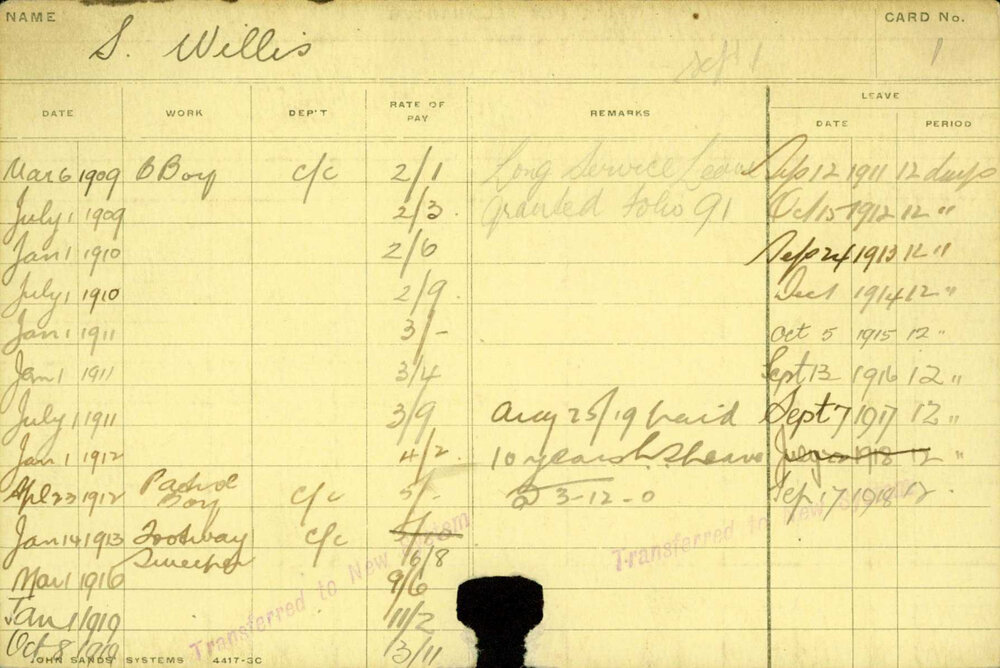 NAME S. Willis CARD No. 1
Sept 1
DATE WORK DEP'T RATE OF PAY REMARKS LEAVE
DATE PERIOD
Mar 6 1909 B Boy C/C 2/1 Long Service Leave Sep 12 1911 12 days
July 1 1909 2/3 granted folio 91 Oct 15 1912 12 "
Jan 1 1910 2/6 Sep 24 1913 12 "
July 1 1910 2/9 Dec 1 1914 12 "
Jan 1 1911 3/- Oct 5 1915 12 "
Jan 1 1911 3/4 Sept 13 1916 12 "
July 1 1911 3/9 Aug 25/19 paid Sept 7 1917 12 "
Jan 1 1912 4/2 10 years L S leave July 1918 12 "
Apl 23 1912 Boy C/C 5/- 3-12-0 Sep 17 1918 12
Jan 14 1913 Footway Sweeper C/C 6/8
Mar 1 1916 9/6
Jan 1 1919 11/2
Oct 8 1919 13/11
Transferred to New System
Transferred to New System
JOHN SANDS SYSTEMS 4417-3C